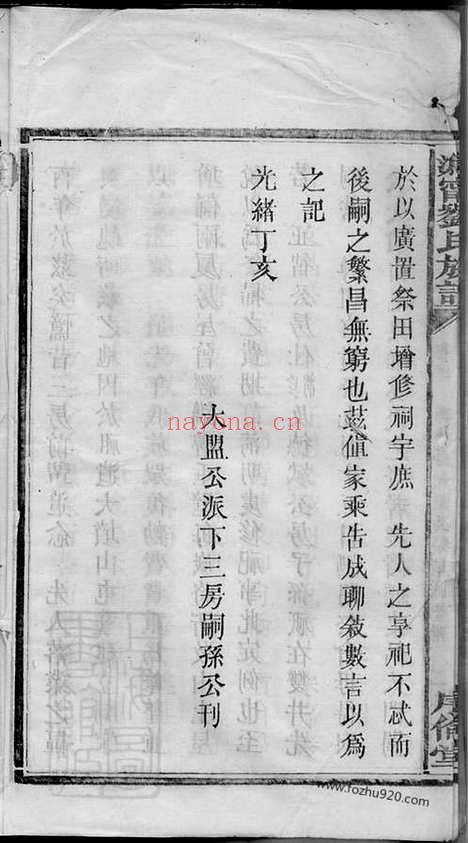 於以廣置祭田增修祠宇庶 先人之享祀不忒而
後嗣之繁昌無窮也茲值家乘告成聊敘數言以爲
之記
光緒丁亥
大盟公派下三房嗣孫公刊
劉氏族譜
倫堂
nayona.cn
www.fozhu920.com